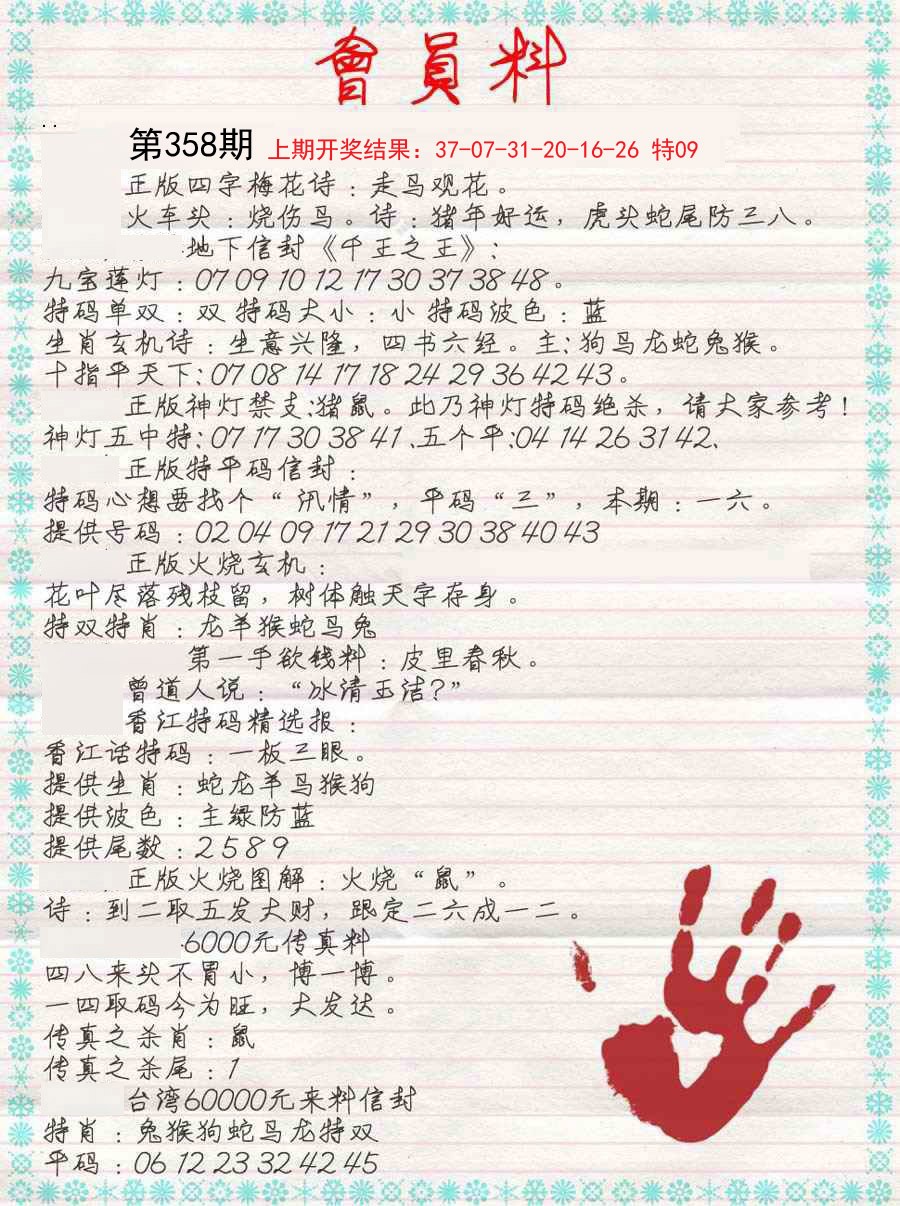 會員料
第358期 上期开奖结果：37-07-31-20-16-26 特09
正版四字梅花诗：走马观花。
火车头：烧伤鸟。诗：猪年好运，虎头蛇尾防三八。
地下信封《千王之王》：
九宝莲灯：07 09 10 12 17 30 37 38 48。
特码单双：双 特码大小：小 特码波色：蓝
生肖玄机诗：生意兴隆，四书六经。主：狗马龙蛇兔猴。
十指平天下：07 08 14 17 18 24 29 36 42 43。
正版神灯禁支：猪鼠。此乃神灯特码绝杀，请大家参考！
神灯五中特：07 17 30 38 41、五个平：04 14 26 31 42、
正版特平码信封：
特码心想要找个“汛情”，平码“三”，本期：一六。
提供号码：02 04 09 17 21 29 30 38 40 43
正版火烧玄机：
花叶尽落残枝留，树体触天字存身。
特双特肖：龙羊猴蛇马兔
第一手欲钱料：皮里春秋。
曾道人说：“冰清玉洁?”
香江特码精选报：
香江话特码：一板三眼。
提供生肖：蛇龙羊马猴狗
提供波色：主绿防蓝
提供尾数：2 5 8 9
正版火烧图解：火烧“鼠”。
诗：到二取五发大财，跟定二六成一二。
6000元传真料
四八来头不冒小，博一博。
一四取码今为旺，大发达。
传真之杀肖：鼠
传真之杀尾：1
台湾60000元来料信封
特肖：兔猴狗蛇马龙特双
平码：06 12 23 32 42 45